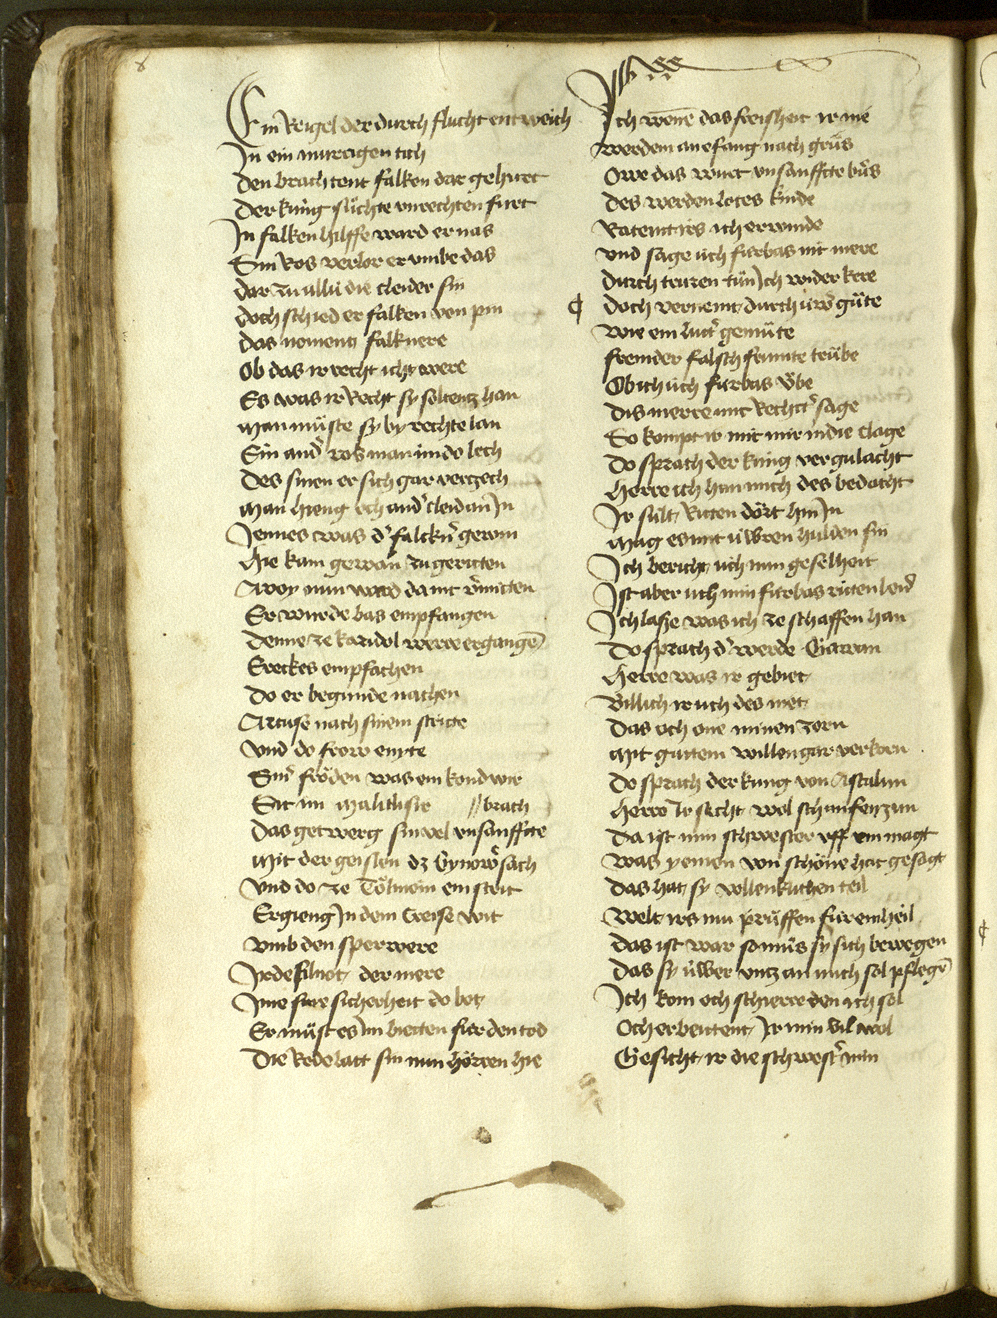 Ein Reigel der durch flucht entweich
In ein murrigen tich
Den brachtent falken dar gehurt
Der kúng sůchte vnrechten furt
In falken hilffe ward er nas
Sin Ros verlor er vmbe das
dar zu allú die cleider sin
doch schied er falken von pin
das noment falknere
Ob das ir recht icht were
Es was ir Recht sy soltentz han
man můste sy by rechte lan
Ein and' ros man im do lech
Des sinen er sich gar verzech
Man hieng och and' cleid an In
Jennes was d' falckn' gewin
Hie kam gewan zu geritten
Avoy nun ward da nit v'mitten
Er wurde bas empfangen
Denne ze karidol were ergangē
Ereckes empfachen
Do er begunde nachen
Artuse nach sinem strite
Vnd do frow enyte
Sin' fröden was ein kondwir
Sit im malithsir // brach
Das getwerg sin vel vnsanffte
Mit der geislen dz Gynow'sach
Vnd do ze Tölmein ein strit
Ergieng In dem Creise wit
Vmb den sperwere
Jrdefilnot der mere
Ime siner sicherheit do bot
Er můst es Im bietten fúr den tod
Die Rede latt sin nun hörren hie
Ich wene das freisheit ir nie
Werden anefang nach grůs
Owe das wirt vnsanffte bůs
Des werden lotes kinde
Ratent irs ich erwinde
vnd sage úch fúrbas nit mere
durch truren tůn Ich wider kere
¶ doch vernemt durch úwer gúte
Wie ein lutt' gemúte
fremder falsch frumte trúbe
Ob ich úch fúrbas v̊be
Dis merre mit Recht' sage
So kompt ir mit mir in die clage
Do sprach der kúng vergulacht
Herre ich han mich des bedacht
Ir súlt Ritten dört hin In
Mag es mit úwren hulden sin
Ich bericht úch nun geselheit
Ist aber úch min fúrbas riten leid
Ich lasse was ich ze schaffen han
Do sprach d' werde Gawan
Herre was ir gebiet
Billich ir úch des niet
Das och one minen zorn
Mit guttem willen gar verkorn
Do sprach der kúng von Astalun
Herre Ir sicht wol schanfenzun
Da ist min schwester vff ein magt
Was yemen von schöne hat gesagt
Das hat sy vollenkuchen teil
Welt irs nu prúffen fúr ein heil
Das ist war so můs sy sich bewegen
Das sy úwer vntz an mich sol pflegē
Ich kom och schierre den ich sol
Och erbeitent Ir min vil wol
Gesicht ir die schwest' min